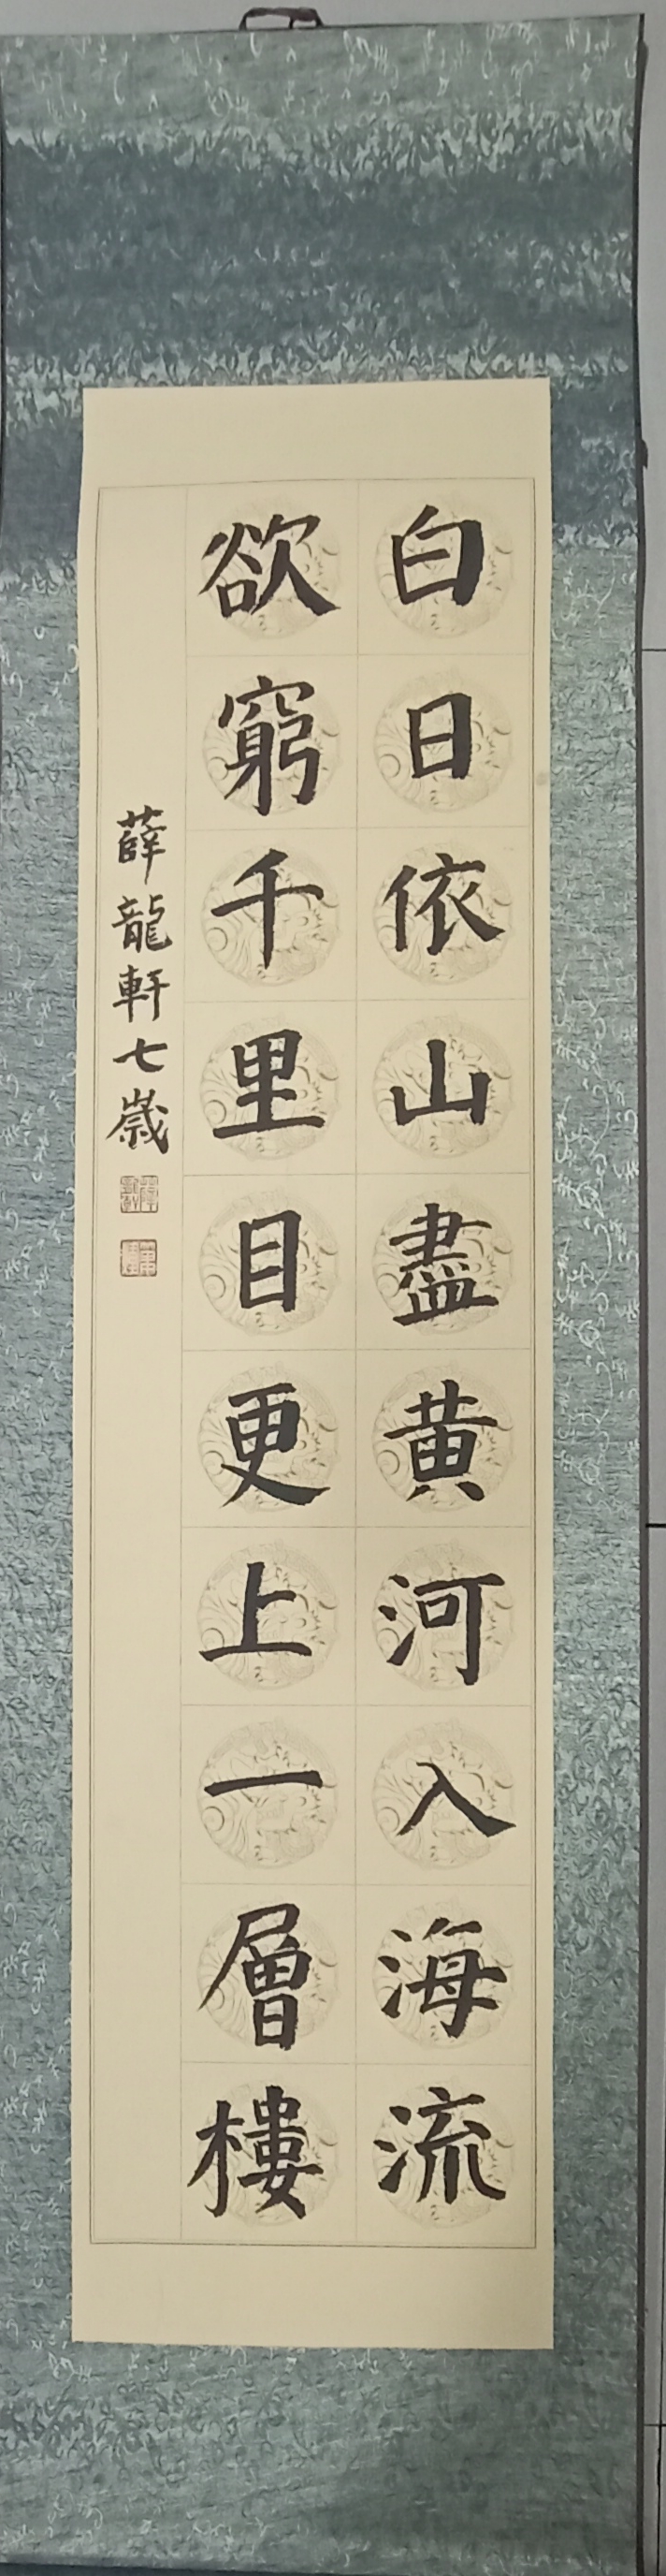 白日依山盡黄河入海流
欲窮千里目更上一層樓
薛龍軒七歲